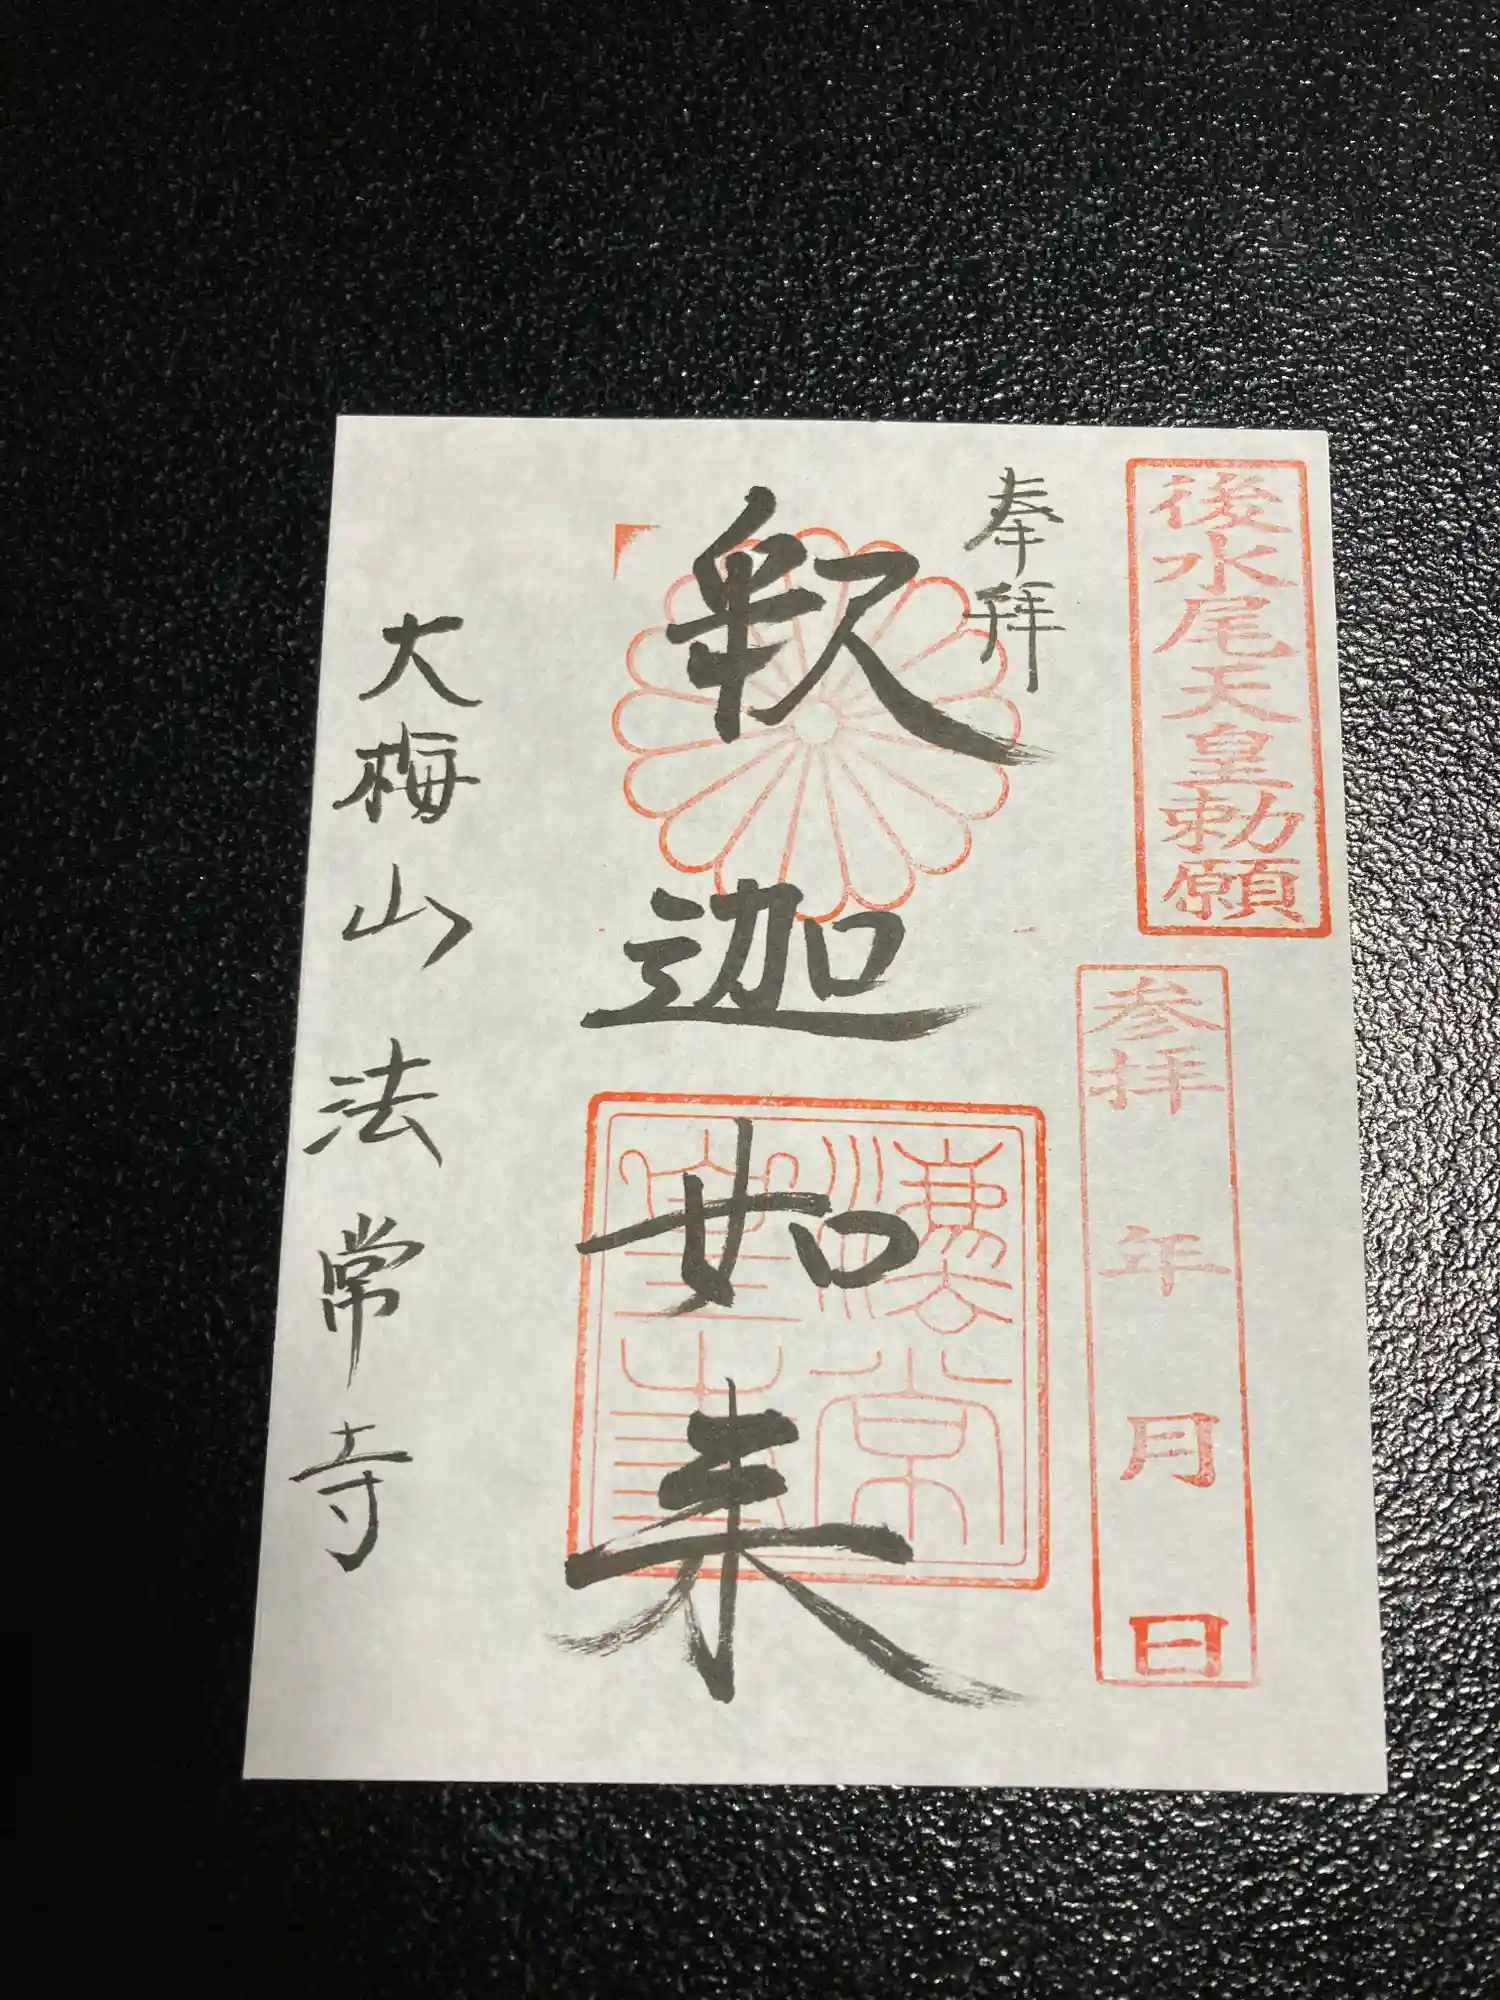 後水尾天皇勅願
参拝 年 月 日
奉拝
釈迦如来
大梅山法常寺